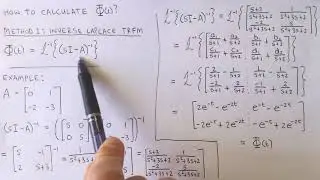 HOW TO CALCULATE Φ(t)?
METHOD 1: INVERSE LAPLACE TRFM
Φ(t) = ℒ⁻¹{(sI-A)⁻¹}
EXAMPLE:
A = [0 1; -2 -3]
(sI-A)⁻¹ = ([s 0; 0 s] - [0 1; -2 -3])⁻¹
= [s -1; 2 s+3]⁻¹ = [s+3/s²+3s+2 1/s²+3s+2; -2/s²+3s+2 s/s²+3s+2]
ℒ⁻¹{(sI-A)⁻¹} = ℒ⁻¹{[s+3/s²+3s+2 1/s²+3s+2; -2/s²+3s+2 s/s²+3s+2]}
= ℒ⁻¹{[a₁/s+1 + a₂/s+2 b₁/s+1 + b₂/s+2; c₁/s+1 + c₂/s+2 d₁/s+1 + d₂/s+2]}
= ℒ⁻¹{[2/s+1 + -1/s+2 1/s+1 + -1/s+2; -2/s+1 + 2/s+2 -1/s+1 + 2/s+2]}
= [2e⁻ᵗ - e⁻²ᵗ e⁻ᵗ - e⁻²ᵗ; -2e⁻ᵗ + 2e⁻²ᵗ -e⁻ᵗ + 2e⁻²ᵗ]
= Φ(t)